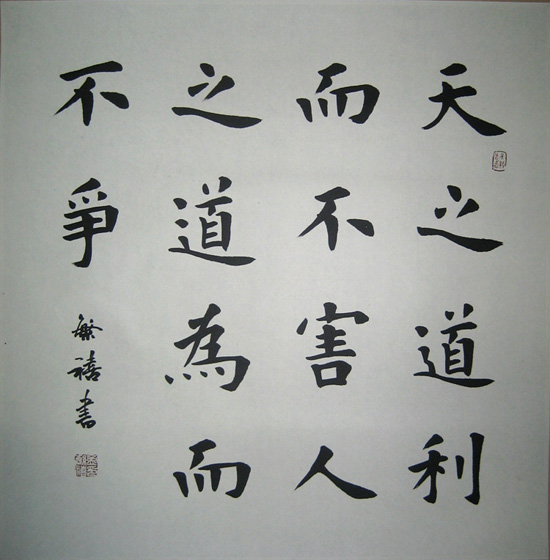 天之道利
而不害人
之道為而
不爭
繁禧書